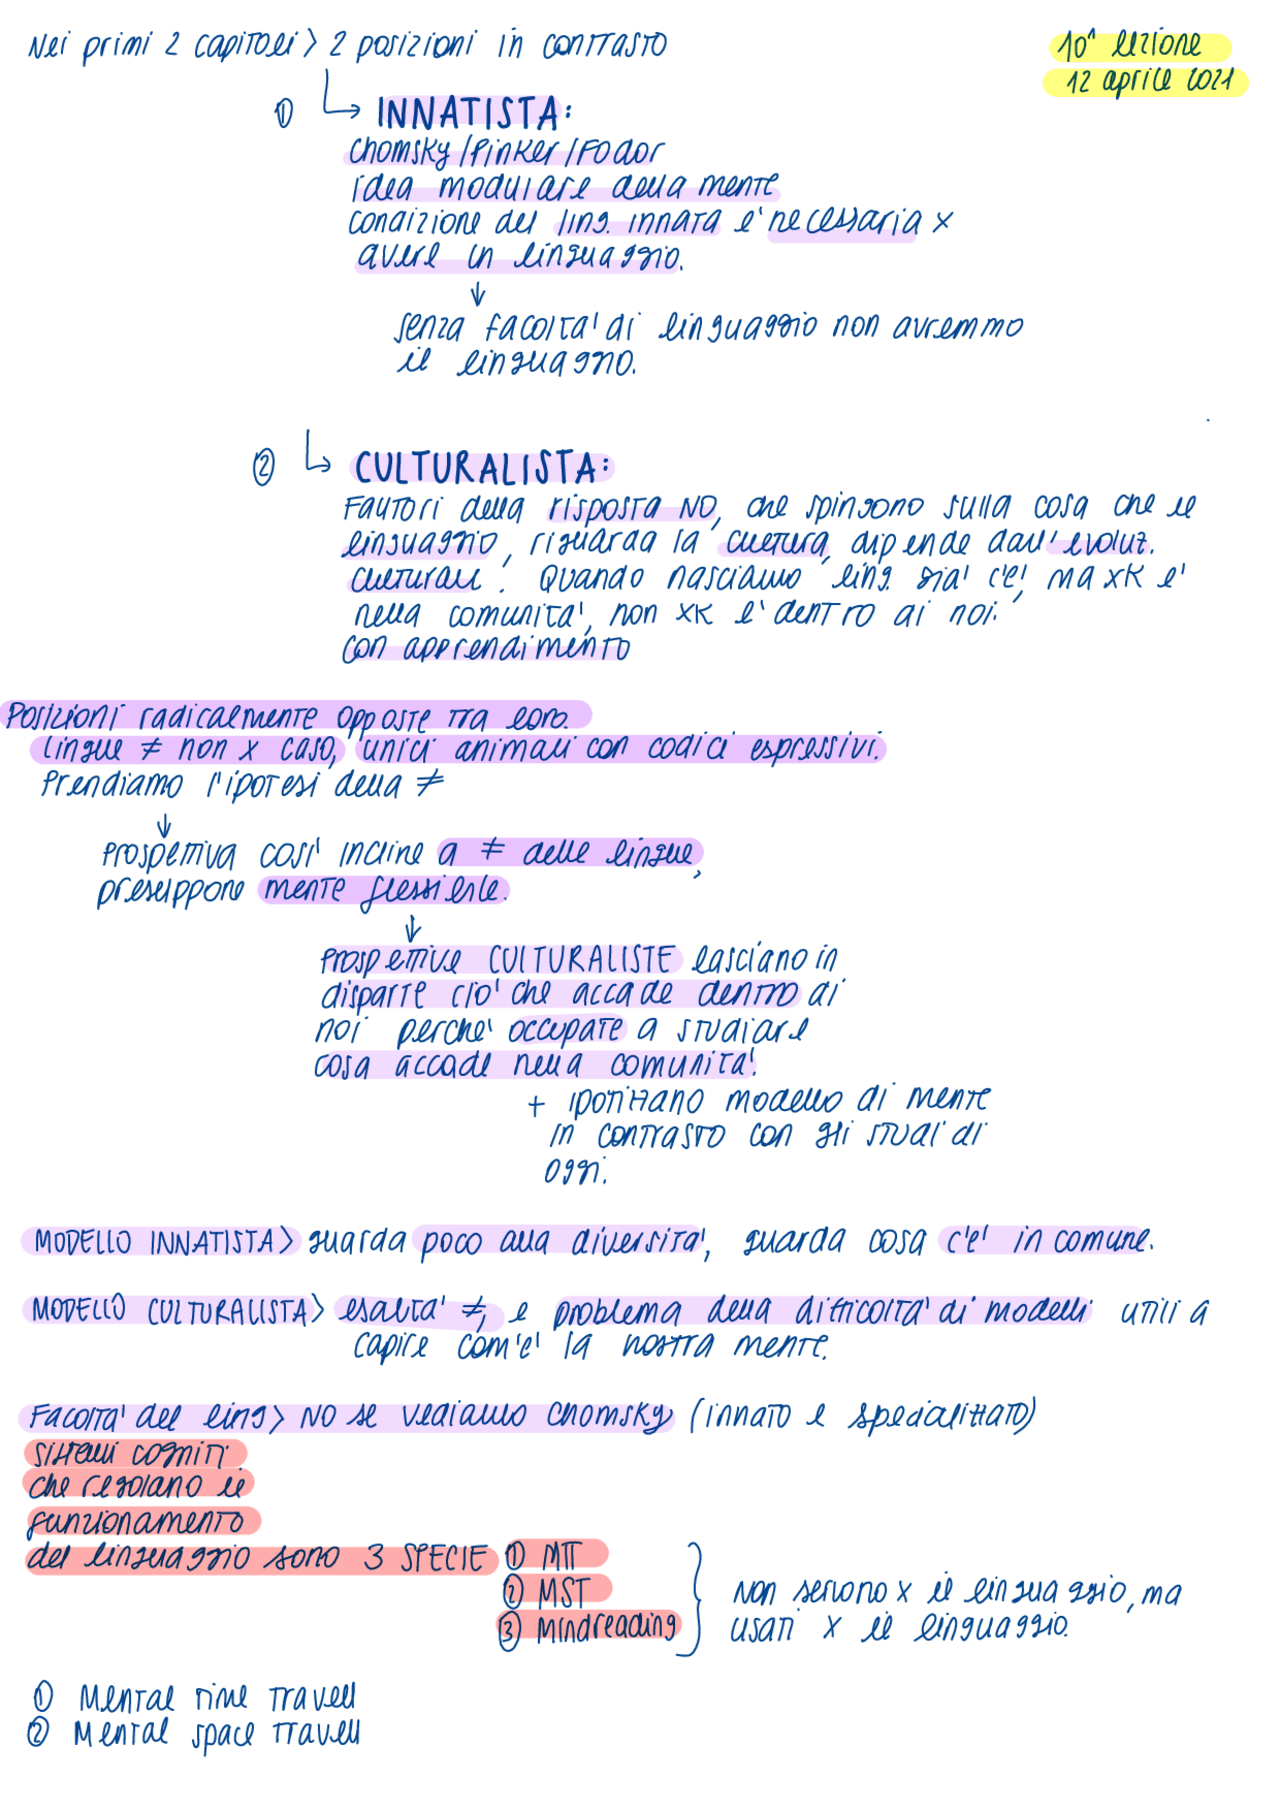 Nei primi 2 capitoli > 2 posizioni in contrasto
10^ lezione
12 aprile 2021
① ↳ INNATISTA:
Chomsky/Pinker/Fodor
idea modulare della mente
condizione del ling. innata e' necessaria x
avere un linguaggio.
↓
senza facolta' di linguaggio non avremmo
il linguaggio.
② ↳ CULTURALISTA:
Fautori della risposta NO, che spingono sulla cosa che il
linguaggio, riguarda la cultura, dipende dall'evoluz.
culturale. Quando nasciamo ling. gia' c'e', ma xk e'
nella comunita', non xk e' dentro di noi.
con apprendimento
Posizioni radicalmente opposte tra loro.
lingue ≠ non x caso, unici animali con codici espressivi.
Prendiamo l'ipotesi della ≠
↓
Prospettiva cosi' incline a ≠ delle lingue,
presuppone mente flessibile.
↓
Prospettive CULTURALISTE lasciano in
disparte cio' che accade dentro di
noi perche' occupate a studiare
cosa accade nella comunita'.
+ ipotizzano modello di mente
in contrasto con gli studi di
oggi.
MODELLO INNATISTA> guarda poco alla diversita', guarda cosa c'e' in comune.
MODELLO CULTURALISTA> esalta' ≠, e problema della difficolta' di modelli utili a
capire com'e' la nostra mente.
Facolta' del ling> NO se vediamo Chomsky (innato e specializzato)
sistemi cogniti
che regolano il
funzionamento
del linguaggio sono 3 SPECIE ① MTT
② MST
③ Mindreading
Non servono x il linguaggio, ma
usati x il linguaggio.
① Mental time travell
② Mental space travell